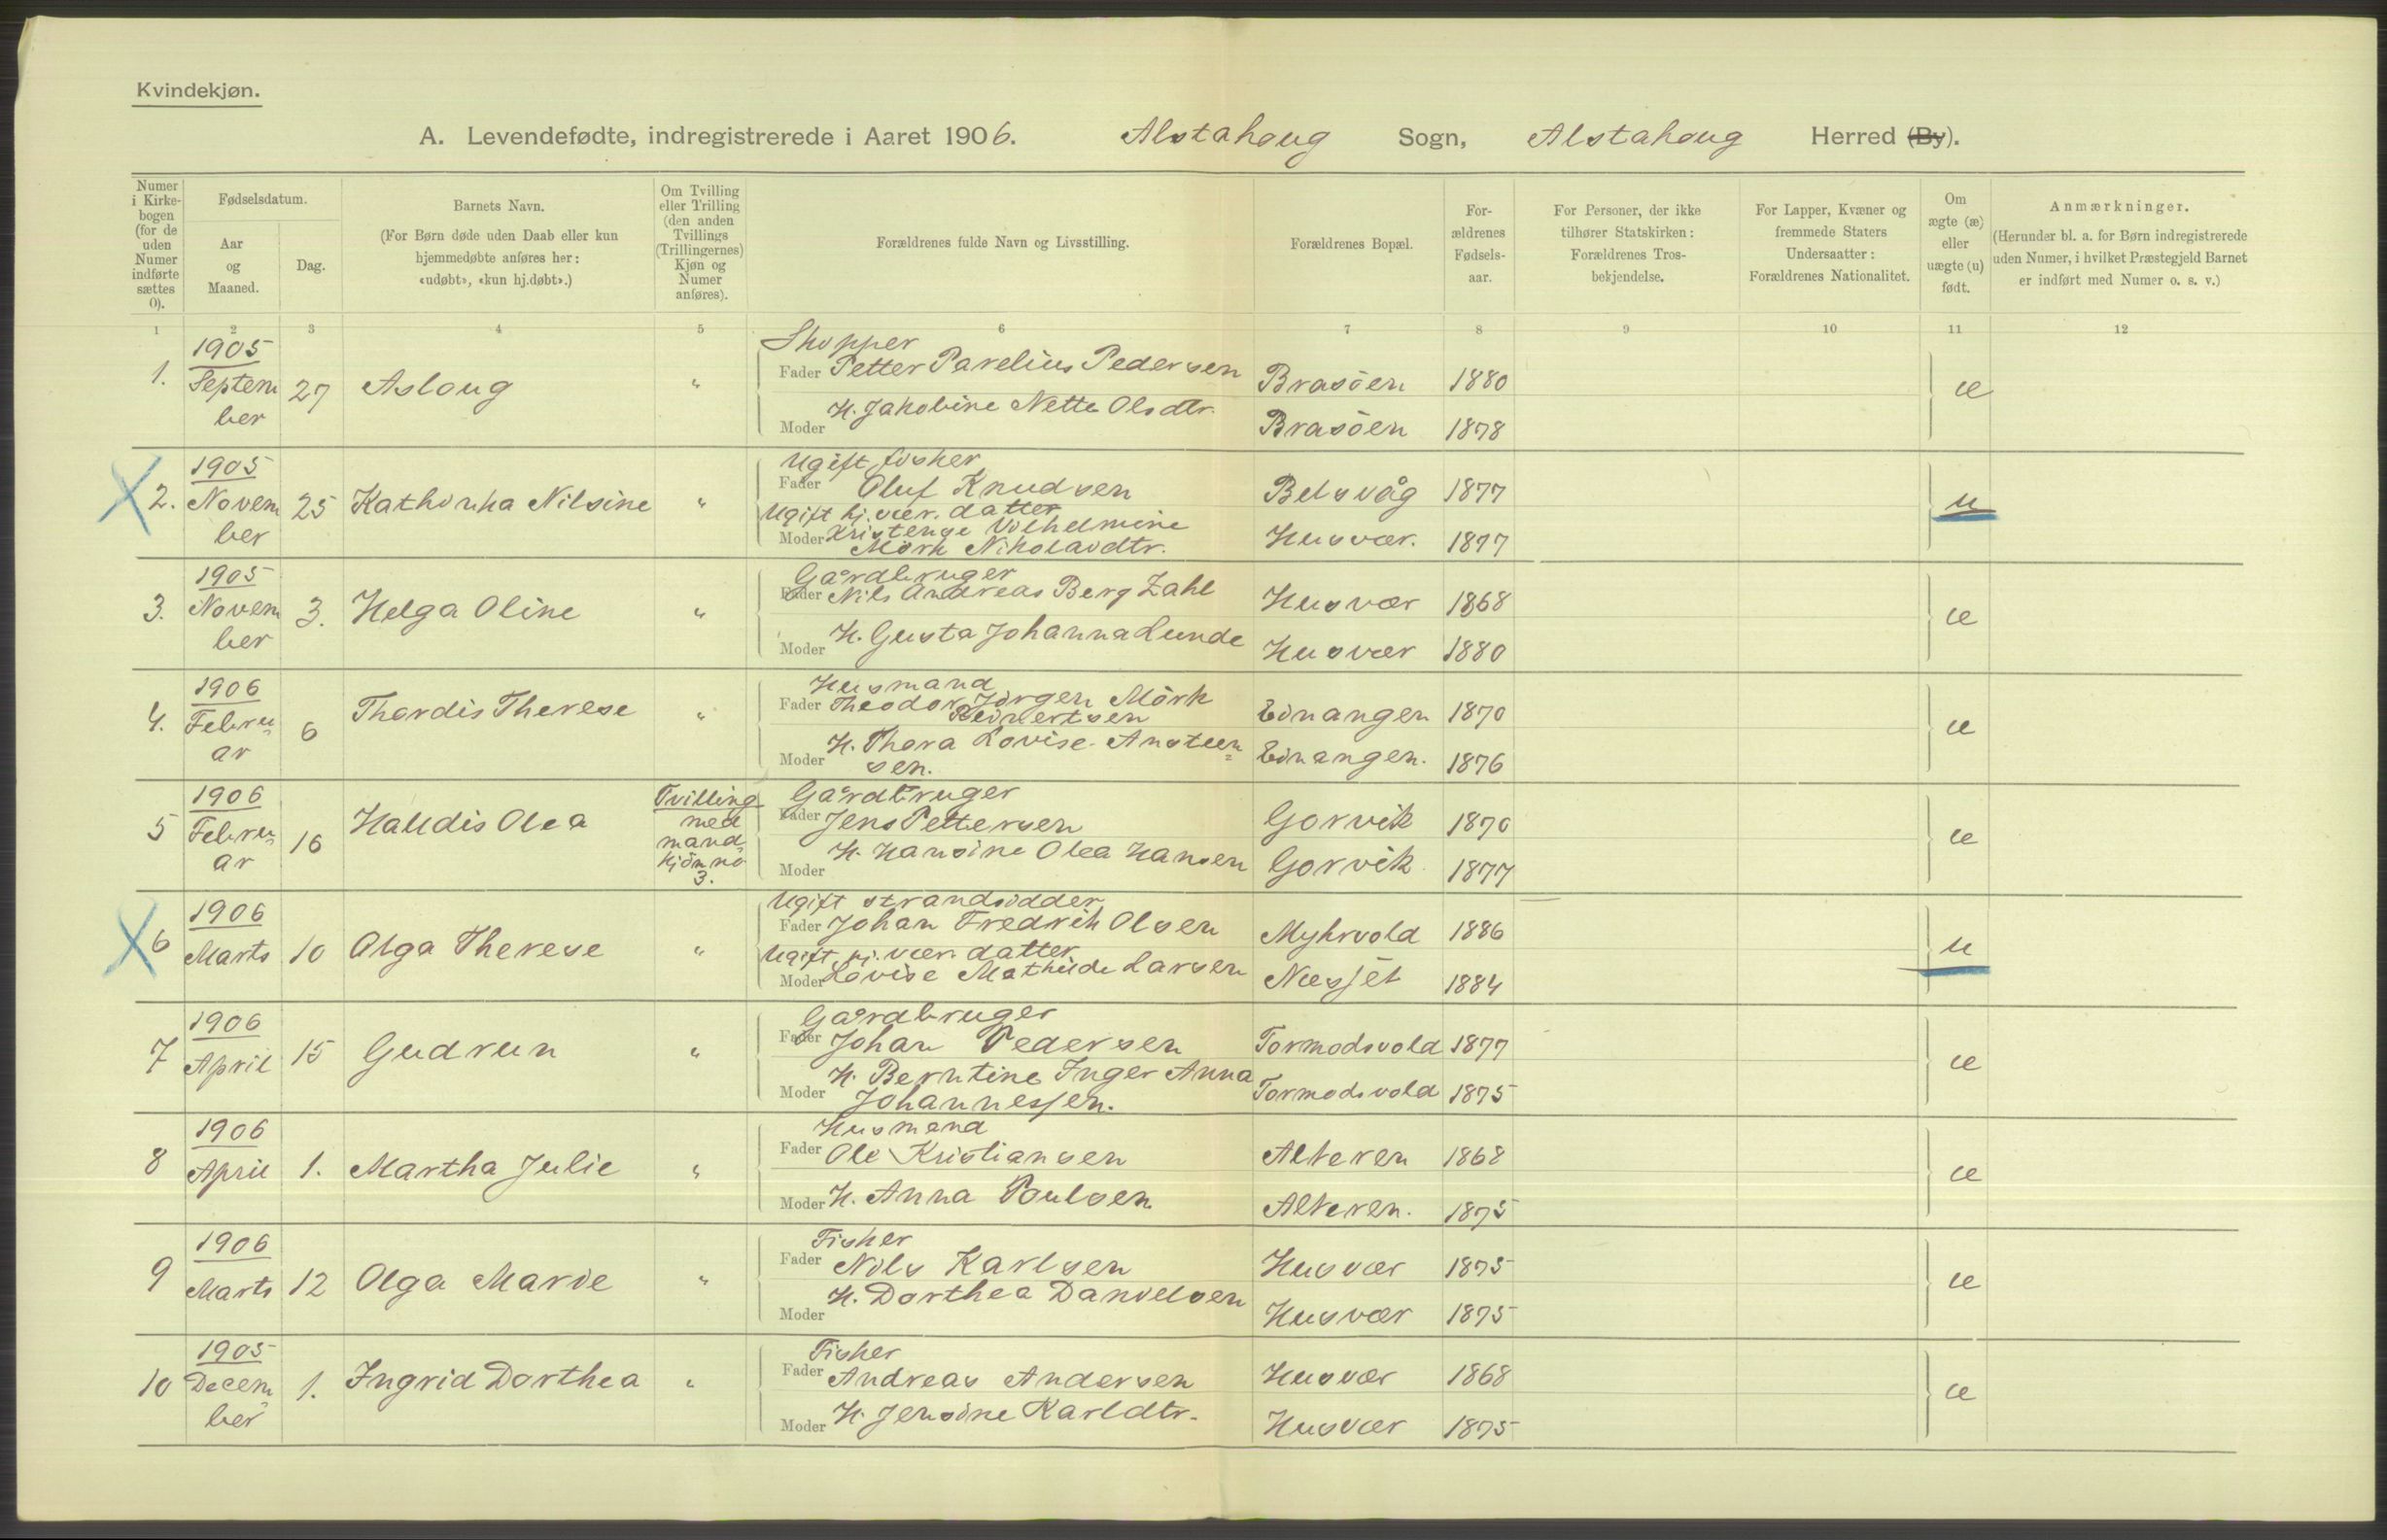 Kvindekjøn.
A. Levendefødte, indregistrerede i Aaret 1906. Alstahoug Sogn, Alstahoug Herred (By).
Numer i Kirkebogen (for de uden Numer indførte sættes 0).
Fødselsdatum.
Aar og Maaned.
Dag.
Barnets Navn.
(For Børn døde uden Daab eller kun hjemmedøbte anføres her: «udøbt», «kun hj.døbt».)
Om Tvilling eller Trilling (den anden Tvillings (Trillingernes) Kjøn og Numer anføres).
Forældrenes fulde Navn og Livsstilling.
Forældrenes Bopæl.
Forældrenes Fødselsaar.
For Personer, der ikke tilhører Statskirken: Forældrenes Trosbekjendelse.
For Lapper, Kvæner og fremmede Staters Undersaatter: Forældrenes Nationalitet.
Om ægte (æ) eller uægte (u) født.
Anmærkninger.
(Herunder bl. a. for Børn indregistrerede uden Numer, i hvilket Præstegjeld Barnet er indført med Numer o. s. v.)
1 2 3 4 5 6 7 8 9 10 11 12
1. 1905 September 27 Asloug "
Skopper
Fader Petter Parelius Pedersen Brasöen 1880 æ
Moder H. Jakobine Nette Olsdtr. Brasöen 1878
2. 1905 November 25 Kathinka Nilsine "
Ugift fisker
Fader Oluf Knudsen Belsvåg 1877 u
Ugift hj. vær. datter
Moder Kristenge Vilhelmine
Mörk Nikolaidtr. Husvær. 1877
3. 1905 November 3. Helga Oline "
Gårdbruger
Fader Nils Andreas Berg Zahl Husvær 1868 æ
Moder H. Gusta Johanna Lunde Husvær 1880
4. 1906 Februar 6 Thordis Therese "
Husmand
Fader Theodor Jörgen Mörk
Reinertsen Einangen 1870 æ
Moder H. Thora Lovise Ansteen=
sen. Einangen. 1876
5 1906 Februar 16 Halldis Olea Tvilling med mandkjön no 3.
Gårdbruger
Fader Jens Pettersen Gorvik 1870 æ
Moder H. Hansine Olea Hansen Gorvik 1877
6 1906 Marts 10 Olga Therese "
Ugift strandsidder
Fader Johan Fredrik Olsen Myhrvold 1886 u
Ugift hj. vær. datter
Moder Lovise Mathilde Larsen Næsjet 1884
7 1906 April 15 Gudrun "
Gårdbruger
Fader Johan Pedersen Tormodsvold 1877 æ
Moder H. Berntine Inger Anna
Johannessen. Tormodsvold 1875
8 1906 April 1. Martha Julie "
Husmand
Fader Ole Kristiansen Alteren 1868 æ
Moder H. Anna Poulsen Alteren. 1875
9 1906 Marts 12 Olga Marie "
Fisker
Fader Nils Karlsen Husvær 1875 æ
Moder H. Dorthea Danielsen Husvær 1875
10 1905 December 1. Ingrid Dorthea "
Fisker
Fader Andreas Andersen Husvær 1868 æ
Moder H. Jensine Karldtr. Husvær 1875